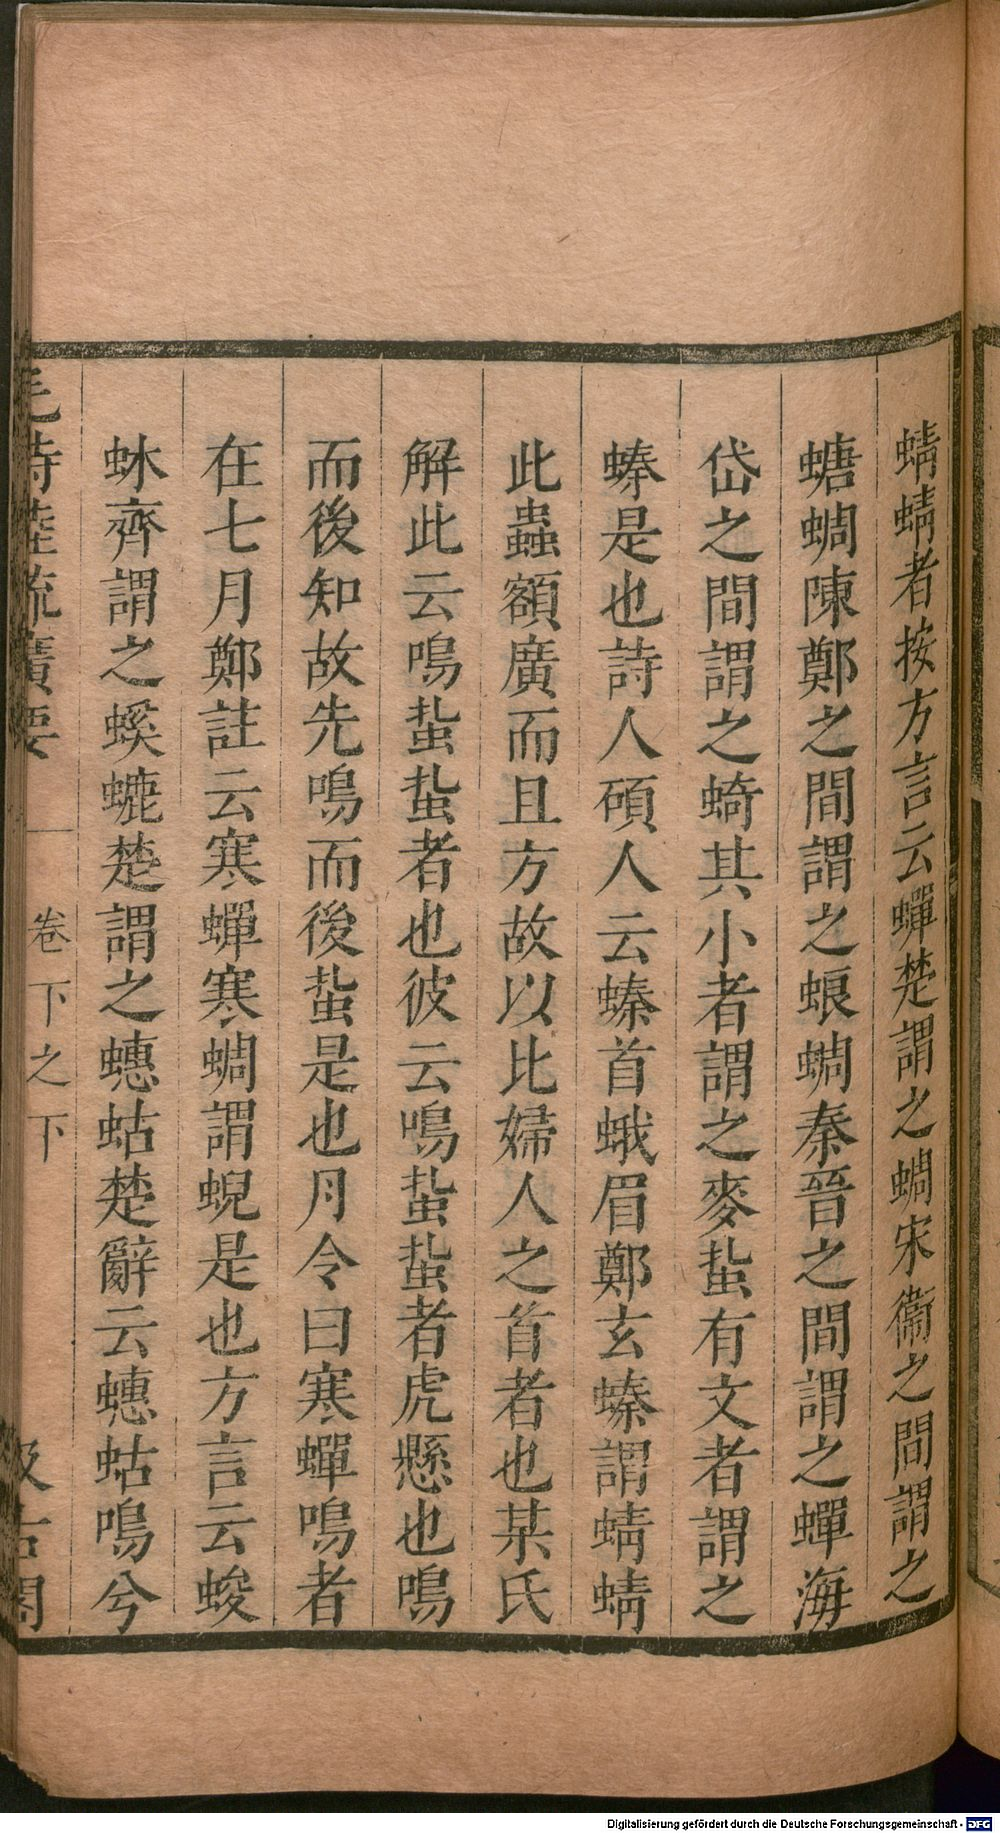 蜻蜻者按方言云蟬楚謂之蜩宋衞之間謂之
螗蜩陳鄭之間謂之蜋蜩秦晉之間謂之蟬海
岱之間謂之蜻其小者謂之麥蚻有文者謂之
螓是也詩人碩人云螓首蛾眉鄭玄螓謂蜻蜻
此蟲額廣而且方故以比婦人之首者也某氏
解此云鳴蚻蚻者也彼云鳴蚻蚻者虎懸也鳴
而後知故先鳴而後蚻是也月令曰寒蟬鳴者
在七月鄭註云寒蟬寒蜩謂蜺是也方言云蛥
蚗齊謂之螇螰楚謂之蟪蛄楚辭云蟪蛄鳴兮
毛詩陸疏廣要 卷下之下 汲古閣
Digitalisierung gefördert durch die Deutsche Forschungsgemeinschaft - DFG